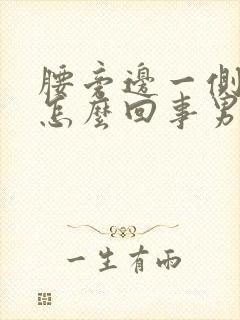 腰旁邊一側
怎麼回事男
一生有雨